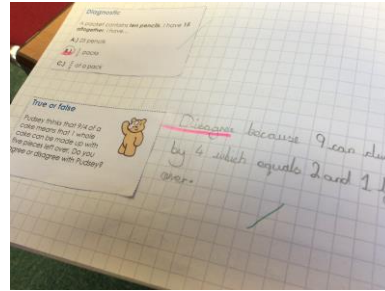 Diagnostic
A packet contains ten pencils. I have 15
altogether. I have...
A.) 01 pencils
pack
C.) of a pack
True or false
Pudsey thinks that 9/4 of a
cake means that 1 whole
cake can be made up with
five pieces left over. Do you
agree or disagree with Pudsey?
Disagree because 9 can
by 4 which equals 2 and 1
over.